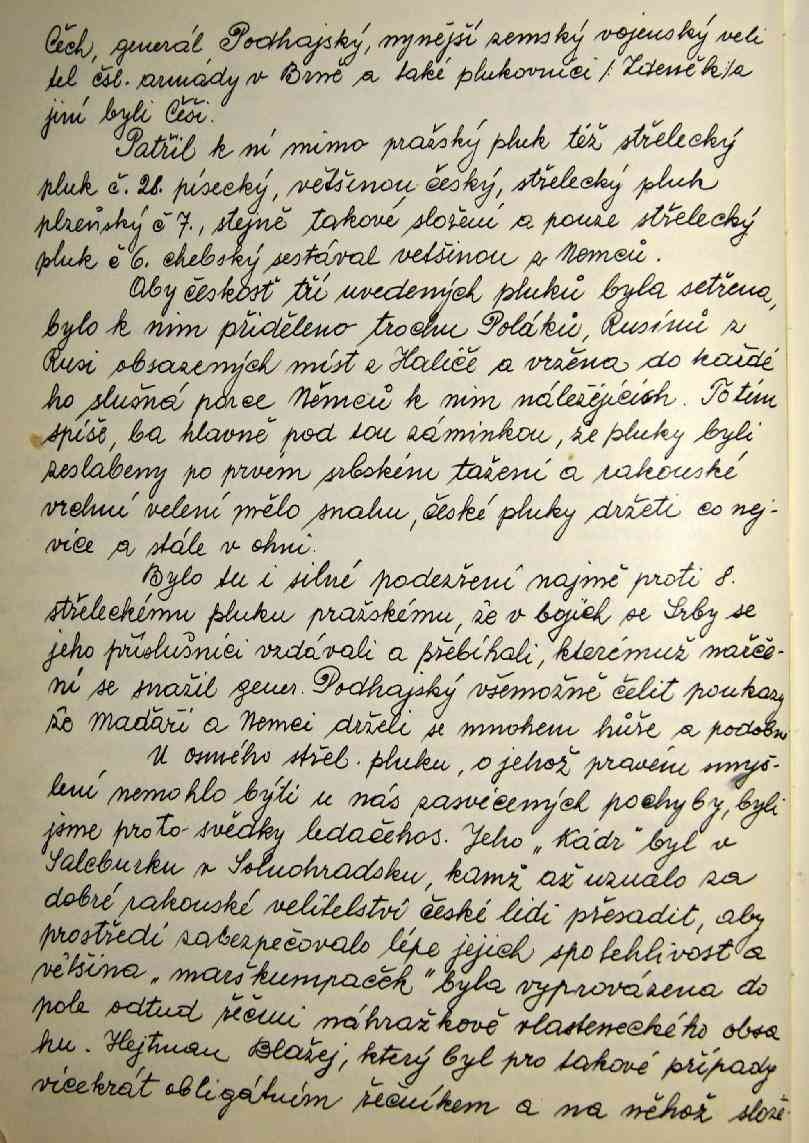 Čech, generál Podhajský, nynější zemský vojenský veli
tel čsl. armády v Brně a také plukovníci /: Zdeněk /a
jiní byli Češi.
Patřil k ní mimo pražský pluk též střelecký
pluk č. 28. písecký, většinou český, střelecký pluk
plzeňský č 7., stejně takové složení a pouze střelecký
pluk č 6. chebský sestával vetšinou z Nemců.
Aby českost tří uvedených pluků byla setřena,
bylo k nim přiděleno trochu Poláků, Rusínů z
Rusi obsazených míst z Haliče a vržena do každé
ho slušná porce Němců k nim náležejících. To tím
spíše, ba hlavně pod tou záminkou, že pluky byli
zeslabeny po prvém srbském tažení a rakouské
vrchní velení mělo snahu, české pluky držeti co nej-
více a stále v ohni.
Bylo tu i silné podezření najmě proti 8.
střeleckému pluku pražskému, že v bojích se Srby se
jeho příslušníci vzdávali a přebíhali, kterémuž nařče-
ní se snažil gener. Podhajský všemožně čelit poukazy
že Maďaři a Nemci drželi se mnohem hůře a podobně
U osmého střel. pluku, o jehož pravém smýš-
lení nemohlo býti u nás zasvěcených pochyby, byli
jsme proto svědky ledačehos. Jeho „Kádr" byl v
Salcburku v Solnohradsku, kamž až uznalo za
dobré rakouské velitelství české lidi přesadit, aby
prostředí zabezpečovalo lépe jejich spolehlivost a
většina „marškumpaček" byla vyprovázena do
pole odtud řečmi náhražkově vlasteneckého obsa
hu. Hejtman Blažej, který byl pro takové případy
vícekrát obligátním řečníkem a na něhož slože-